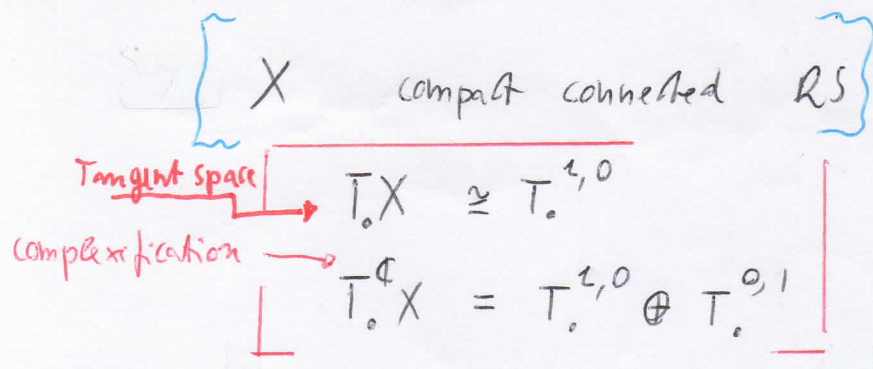 X compact connected RS
Tangent space
T.X ≅ T.^{1,0}
complexification
T.^ℂ X = T.^{1,0} ⊕ T.^{0,1}